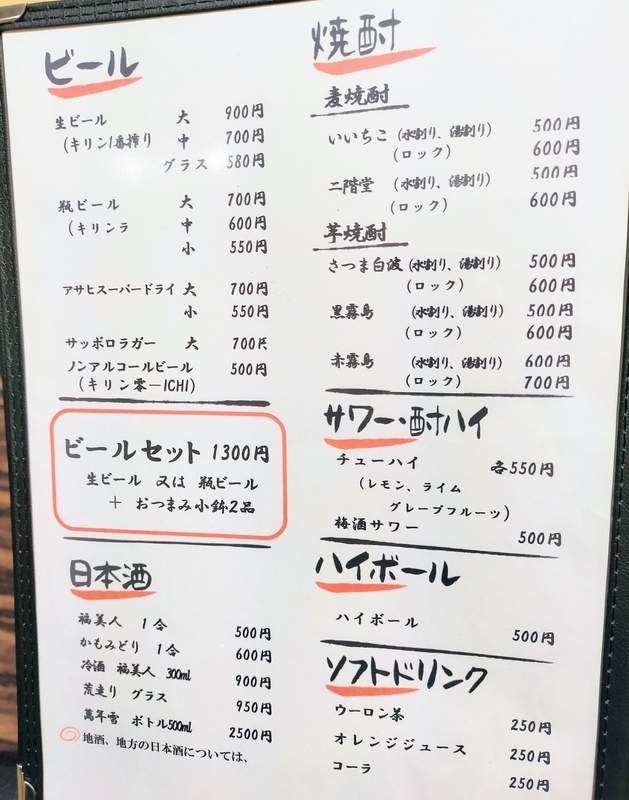 ビール
生ビール 大 900円
(キリン1番搾り 中 700円
グラス 580円
瓶ビール 大 700円
(キリンラ 中 600円
小 550円
アサヒスーパードライ 大 700円
小 550円
サッポロラガー 大 700円
ノンアルコールビール 500円
(キリン零ーICHI)
ビールセット 1300円
生ビール 又は 瓶ビール
+ おつまみ小鉢2品
日本酒
福美人 1合 500円
かもみどり 1合 600円
冷酒 福美人 300ml 900円
荒走り グラス 950円
萬年雪 ボトル500ml 2500円
地酒、地方の日本酒については、
焼酎
麦焼酎
いいちこ (水割り、湯割り) 500円
(ロック) 600円
二階堂 (水割り、湯割り) 500円
(ロック) 600円
芋焼酎
さつま白波 (水割り、湯割り) 500円
(ロック) 600円
黒霧島 (水割り、湯割り) 500円
(ロック) 600円
赤霧島 (水割り、湯割り) 600円
(ロック) 700円
サワー・酎ハイ
チューハイ 各550円
(レモン、ライム
グレープフルーツ)
梅酒サワー 500円
ハイボール
ハイボール 500円
ソフトドリンク
ウーロン茶 250円
オレンジジュース 250円
コーラ 250円